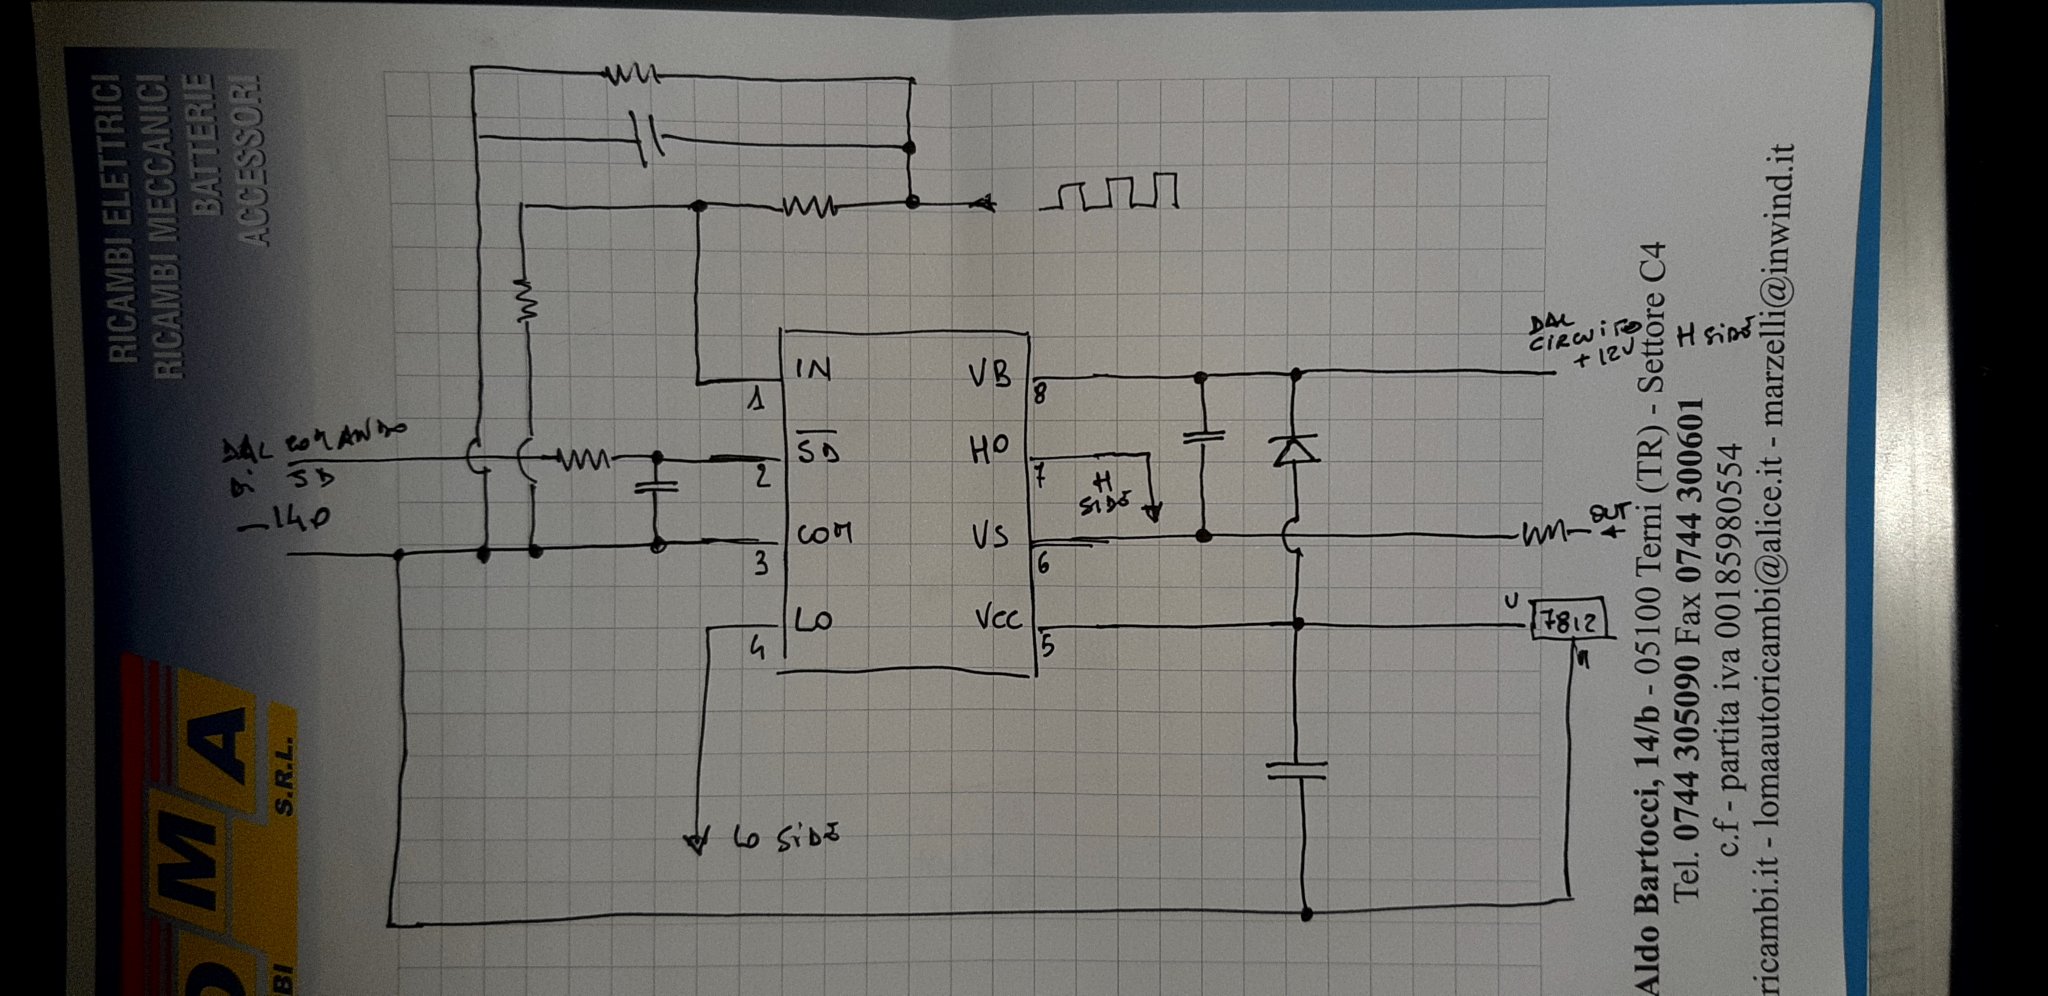 RICAMBI ELETTRICI
RICAMBI MECCANICI
BATTERIE
ACCESSORI
OMA
S.R.L.
BI
DAL COMANDO
SD
-140
IN
1
SD
2
COM
3
LO
4
VB
8
HO
7
VS
6
VCC
5
H
SIDE
LO SIDE
DAL
CIRCUITO
+12V
H SIDE
OUT
+
U
7812
Aldo Bartocci, 14/b - 05100 Terni (TR) - Settore C4
Tel. 0744 305090 Fax 0744 300601
c.f - partita iva 00185980554
ricambi.it - lomaautoricambi@alice.it - marzelli@inwind.it